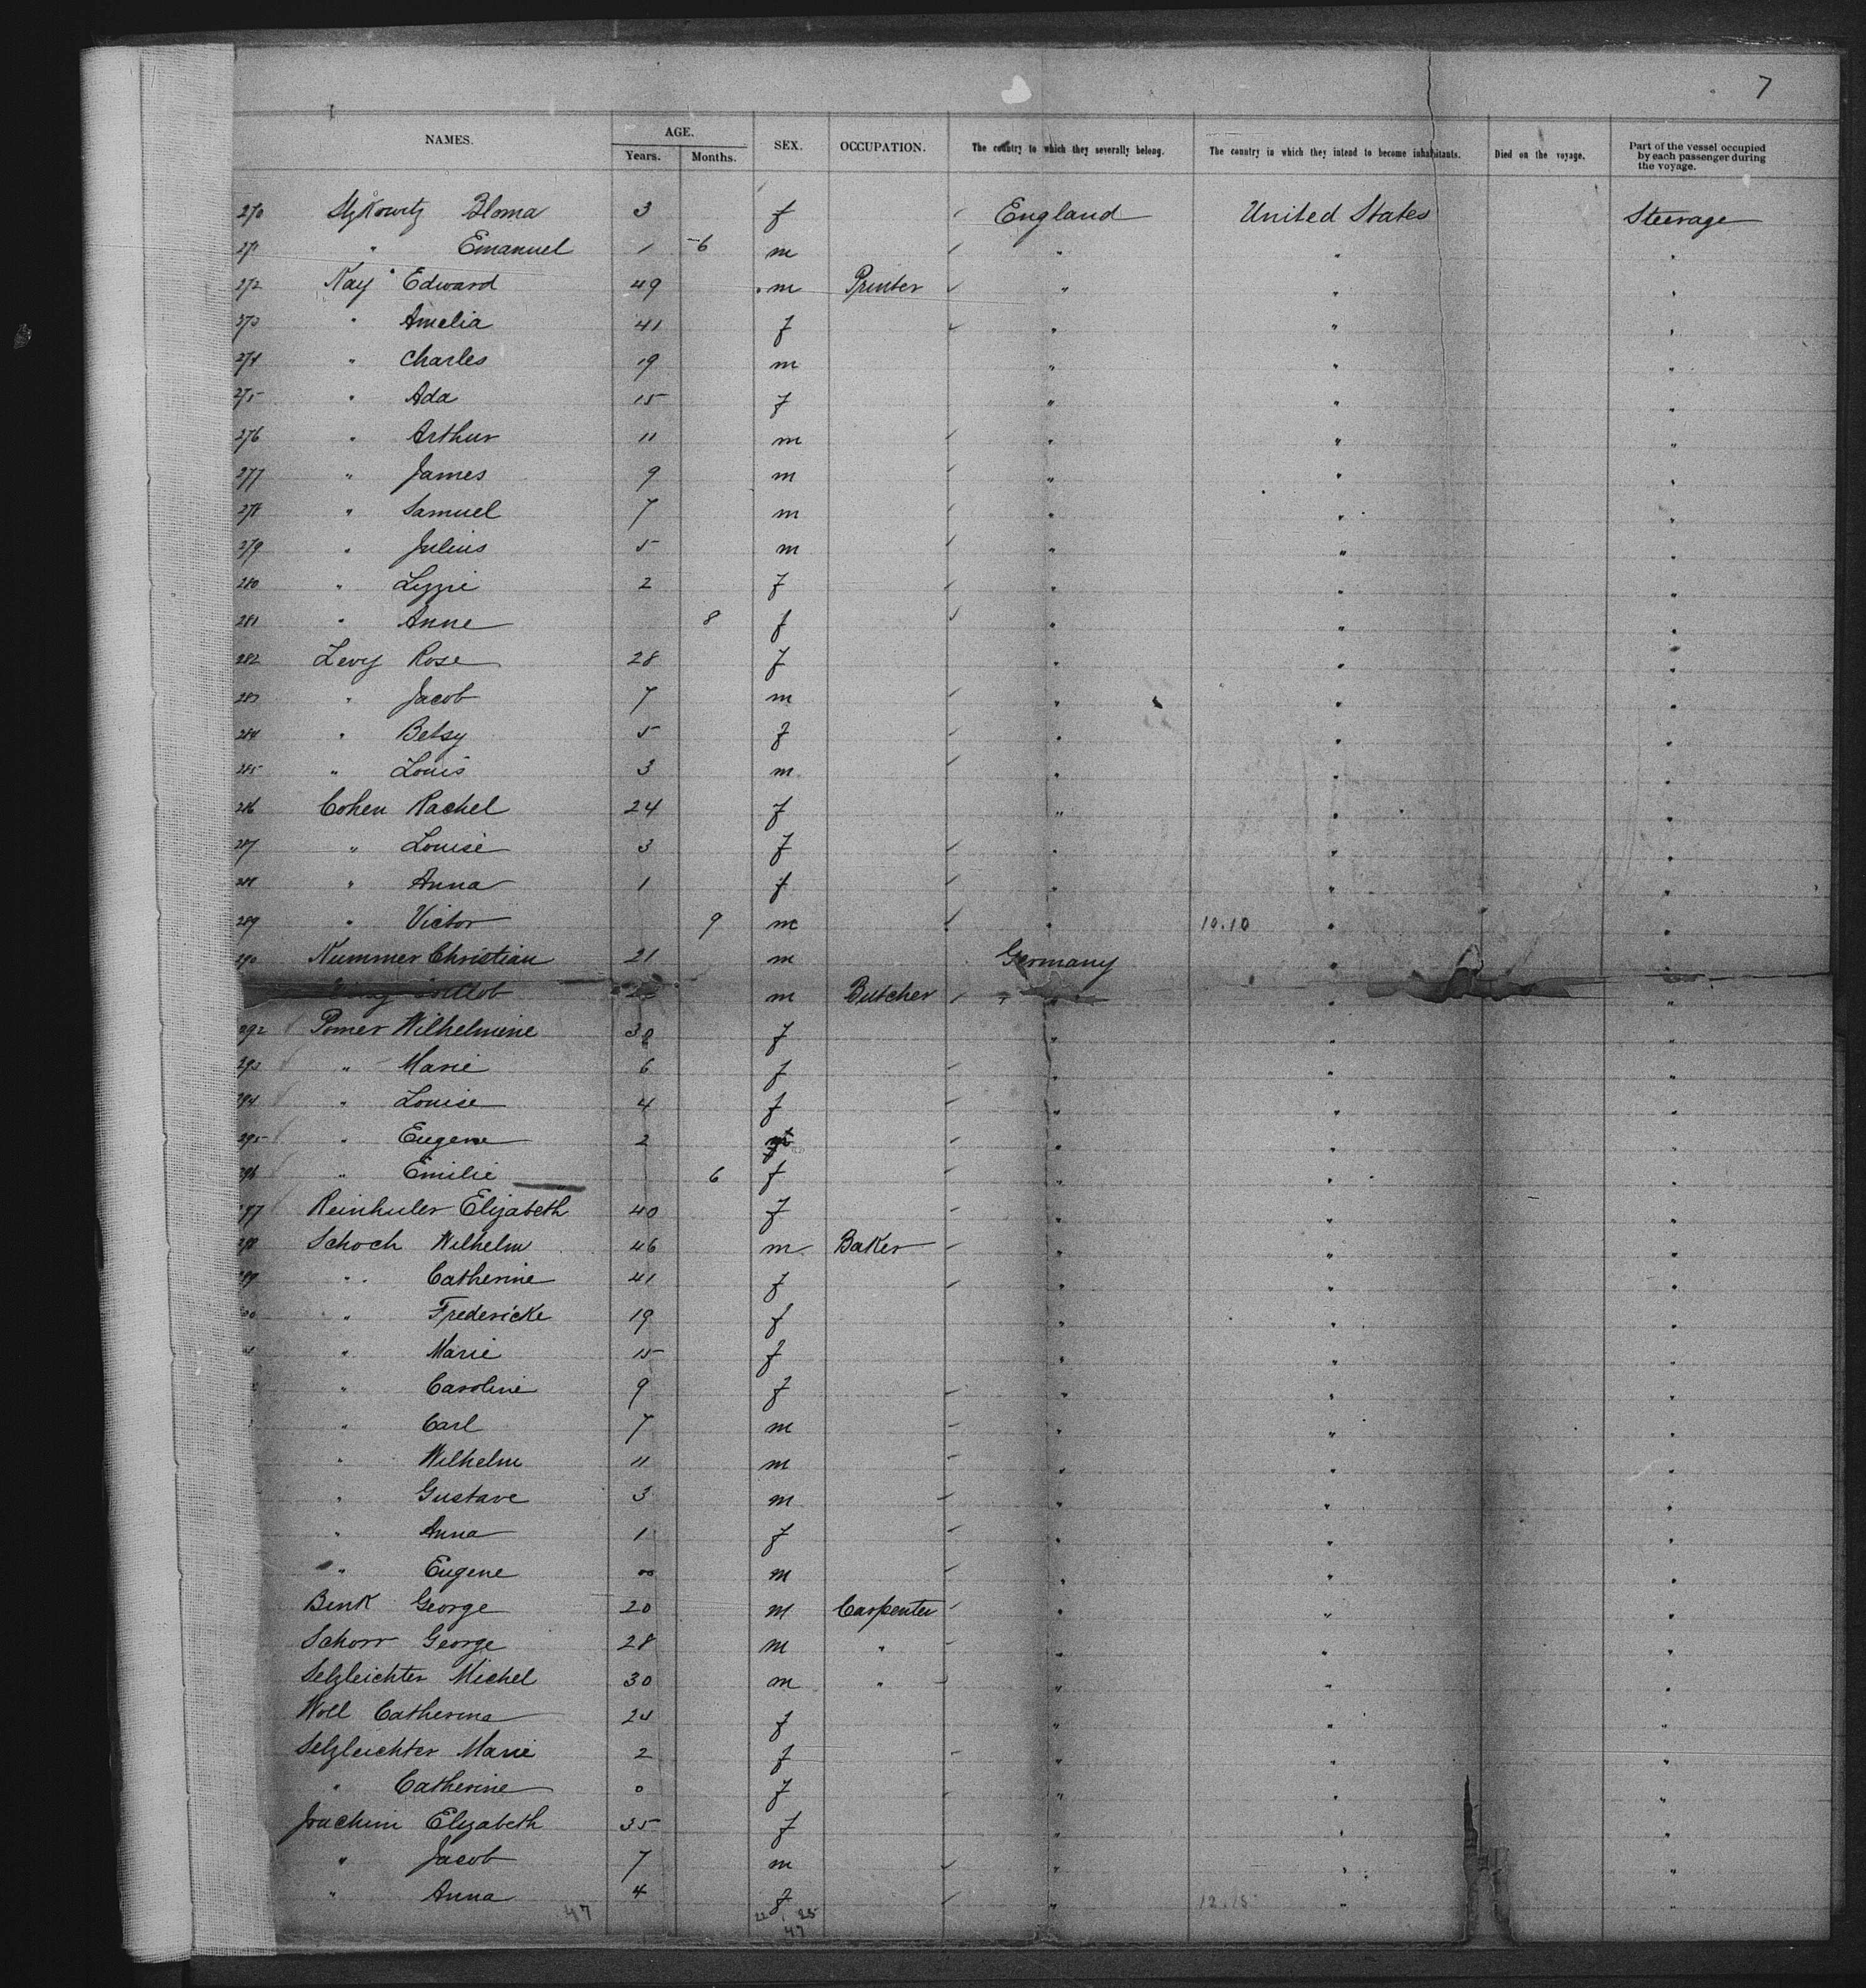 7
NAMES. AGE. Years. Months. SEX. OCCUPATION. The country to which they severally belong. The country in which they intend to become inhabitants. Died on the voyage. Part of the vessel occupied by each passenger during the voyage.
270 Bloma 3 f England United States Steerage
271 " Emanuel 1 6 m " " "
272 Kay Edward 49 m Printer " " "
273 " Amelia 41 f " " "
274 " Charles 19 m " " "
275 " Ada 15 f " " "
276 " Arthur 11 m " " "
277 " James 9 m " " "
278 " Samuel 7 m " " "
279 " Julius 5 m " " "
280 " Lizzie 2 f " " "
281 " Anne 8 f " " "
282 Levy Rose 28 f " " "
283 " Jacob 7 m " " "
284 " Betsy 5 f " " "
285 " Louis 3 m " " "
286 Cohen Rachel 24 f " " "
287 " Louise 3 f " " "
288 " Anna 1 f " " "
289 " Victor 9 m " 10.10 " "
290 Kummer Christian 21 m Germany " "
m Butcher " " "
292 Pomer Wilhelmine 38 f " " "
293 " Marie 6 f " " "
294 " Louise 4 f " " "
295 " Eugene 2 f " " "
296 " Emilie 6 f " " "
297 Reinhuler Elizabeth 40 f " " "
298 Schoch Wilhelm 46 m Baker " " "
299 " Catherine 41 f " " "
" Fredericke 19 f " " "
" Marie 15 f " " "
" Caroline 9 f " " "
" Carl 7 m " " "
" Wilhelm 11 m " " "
" Gustave 3 m " " "
" Anna 1 f " " "
" Eugene 00 m " " "
Benk George 20 m Carpenter " " "
Schorr George 28 m " " " "
Selzleichter Michel 30 m " " " "
Woll Catherina 24 f " " "
Selzleichter Marie 2 f " " "
" Catherine 0 f " " "
Joachim Elizabeth 35 f " " "
" Jacob 7 m " " "
" Anna 4 f " 12.15 " "
47 22 25
47